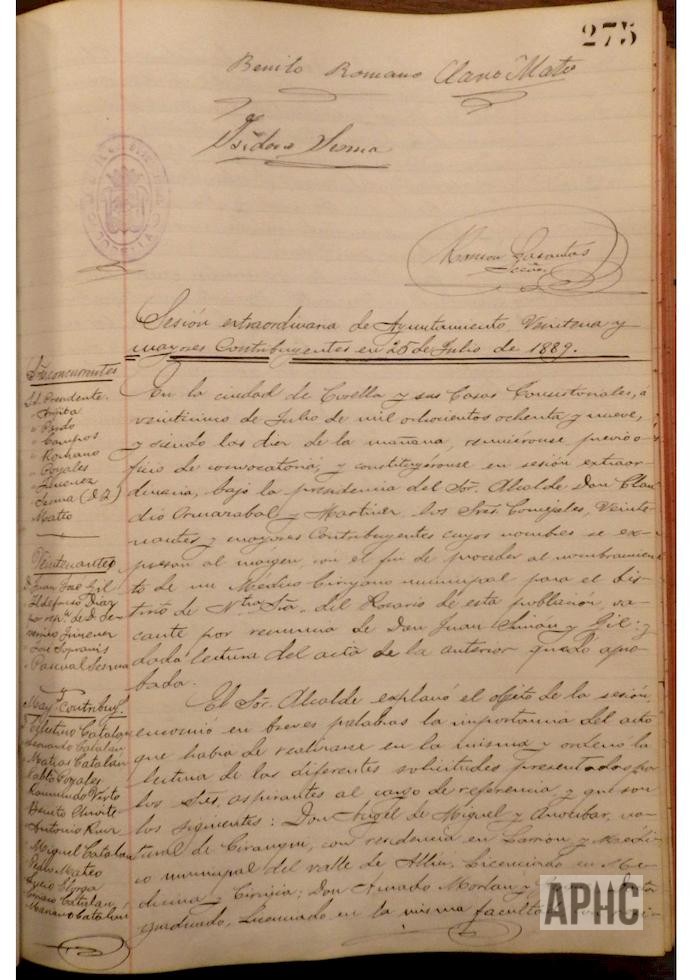 275
Benito Romano Claro Mateo
Isidoro Sesma
Ramon
Sesión extraordinaria de Ayuntamiento, Veintena y
mayores Contribuyentes en 25 de Julio de 1889.
Sres concurrentes
Sr. Presidente.
" Pardo
" Campos
" Romano
" Gozales
" Jimenez
" Sesma (D. I.)
Mateo
Veintenantes
D. Juan José Gil
Ildefonso Diaz
por repn. de D. De-
metrio Jimenez
José
Pascual Sesma
May. Contribuy.
Celestino Catalan
Leonardo Catalan
Matias Catalan
Pablo Gozales
Raimundo Virto
Benito
Antonio Ruiz
Miguel Catalan
Pedro Mateo
Catalan
Mariano Catalan
En la ciudad de Corella y sus Casas Consistoriales, á
veinticinco de Julio de mil ochocientos ochenta y nueve,
y siendo las diez de la mañana, reuniéronse previo o-
ficio de convocatoria, y constituyéronse en sesión extraor-
dinaria, bajo la presidencia del Sor. Alcalde Don Clau
dio Ormazabal y Martinez, los Sres. Concejales, Veinte-
nantes y mayores Contribuyentes cuyos nombres se ex-
presan al margen, con el fin de proceder al nombramien
to de un Medico Cirujano municipal para el dis-
trito de Ntra. Sra. del Rosario de esta población, va-
cante por renuncia de Don Juan Simon y Gil: y
dada lectura del acta de la anterior quedó apro-
bada.
El Sor. Alcalde explanó el objeto de la sesión,
encomió en breves palabras la importancia del acto
que habia de realizarse en la misma y ordenó la
lectura de las diferentes solicitudes presentadas por
los Sres. aspirantes al cargo de referencia, y que son
los siguientes: Don Angel de Miguel y na-
tural de Cirauqui, con residencia en Larrion y Medi-
co municipal del valle de Allin, Licenciado en Me-
dicina y Cirujia; Don Amado Morlan y
graduado, Licenciado en la misma facultad
APHC